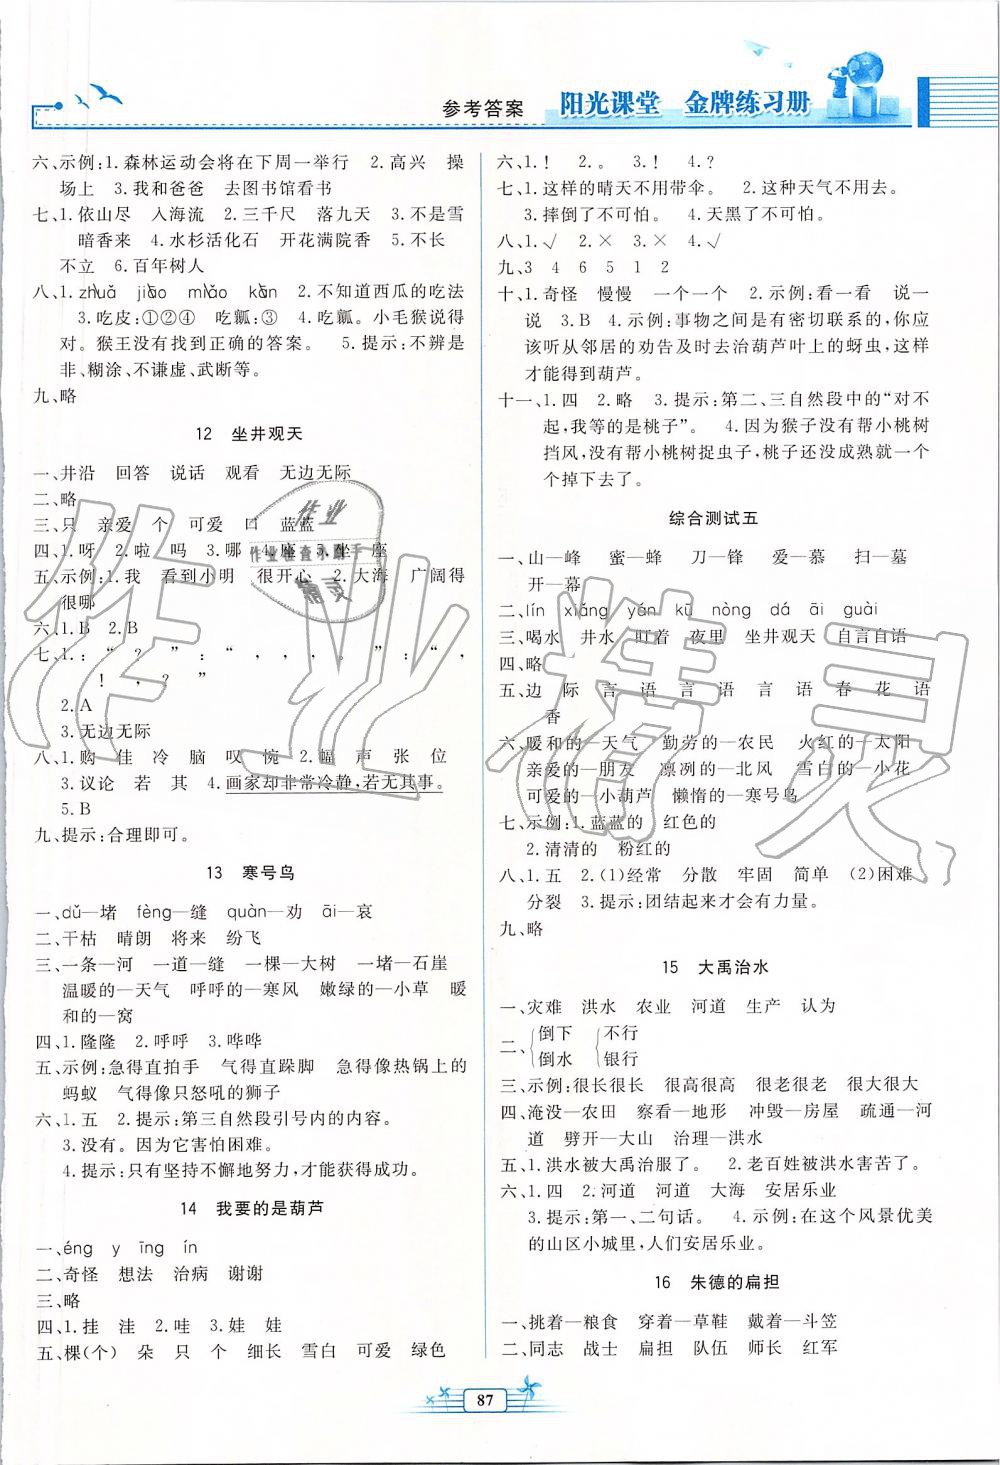 参考答案
阳光课堂　金牌练习册
六、示例:1.森林运动会将在下周一举行　2.高兴　操
场上　3.我和爸爸　去图书馆看书
七、1.依山尽　入海流　2.三千尺　落九天　3.不是雪
暗香来　4.水杉活化石　开花满院香　5.不长
不立　6.百年树人
八、1.zhuā　jiāo　miáo　kǎn　2.不知道西瓜的吃法
3.吃皮:①②④　吃瓤:③　4.吃瓤。小毛猴说得
对。猴王没有找到正确的答案。　5.提示:不辨是
非、糊涂、不谦虚、武断等。
九、略
12　坐井观天
一、井沿　回答　说话　观看　无边无际
二、略
三、只　亲爱　个　可爱　口　蓝蓝
四、1.呀　2.啦　吗　3.哪　4.座　5.坐　座
五、示例:1.我　看到小明　很开心　2.大海　广阔得
很哪
六、1.B　2.B
七、1.:　“　?　”　:　“　,　,　,　。　”　:　“　,
!　,　?　”
2.A
3.无边无际
八、1.购　佳　冷　脑　叹　惋　2.幅　声　张　位
3.议论　若　其　4.画家却非常冷静,若无其事。
5.B
九、提示:合理即可。
13　寒号鸟
一、dǔ—堵　fèng—缝　quàn—劝　āi—哀
二、干枯　晴朗　将来　纷飞
三、一条—河　一道—缝　一棵—大树　一堵—石崖
温暖的—天气　呼呼的—寒风　嫩绿的—小草　暖
和的—窝
四、1.隆隆　2.呼呼　3.哗哗
五、示例:急得直拍手　气得直跺脚　急得像热锅上的
蚂蚁　气得像只怒吼的狮子
六、1.五　2.提示:第三自然段引号内的内容。
3.没有。因为它害怕困难。
4.提示:只有坚持不懈地努力,才能获得成功。
14　我要的是葫芦
一、éng　y　īng　ín
二、奇怪　想法　治病　谢谢
三、略
四、1.挂　洼　2.哇　3.娃　娃
五、棵(个)　朵　只　个　细长　雪白　可爱　绿色
六、1.!　2.。　3.!　4.?
七、1.这样的晴天不用带伞。　2.这种天气不用去。
3.摔倒了不可怕。　4.天黑了不可怕。
八、1.√　2.×　3.×　4.√
九、3　4　6　5　1　2
十、1.奇怪　慢慢　一个一个　2.示例:看一看　说一
说　3.B　4.示例:事物之间是有密切联系的,你应
该听从邻居的劝告及时去治葫芦叶上的蚜虫,这样
才能得到葫芦。
十一、1.四　2.略　3.提示:第二、三自然段中的“对不
起,我等的是桃子”。　4.因为猴子没有帮小桃树
挡风,没有帮小桃树捉虫子,桃子还没成熟就一个
个掉下去了。
综合测试五
一、山—峰　蜜—蜂　刀—锋　爱—慕　扫—墓
开—幕
二、lín　xiáng　yán　kū　nòng　dá　āi　guài
三、喝水　井水　盯着　夜里　坐井观天　自言自语
四、略
五、边　际　言　语　言　语　言　语　春　花　语
香
六、暖和的—天气　勤劳的—农民　火红的—太阳
亲爱的—朋友　凛冽的—北风　雪白的—小花
可爱的—小葫芦　懒惰的—寒号鸟
七、示例:1.蓝蓝的　红色的
2.清清的　粉红的
八、1.五　2.(1)经常　分散　牢固　简单　(2)困难
分裂　3.提示:团结起来才会有力量。
九、略
15　大禹治水
一、灾难　洪水　农业　河道　生产　认为
二、{倒下　{不行
倒水　银行
三、示例:很长很长　很高很高　很老很老　很大很大
四、淹没—农田　察看—地形　冲毁—房屋　疏通—河
道　劈开—大山　治理—洪水
五、1.洪水被大禹治服了。　2.老百姓被洪水害苦了。
六、1.四　2.河道　河道　大海　安居乐业
3.提示:第一、二句话。　4.示例:在这个风景优美
的山区小城里,人们安居乐业。
16　朱德的扁担
一、挑着—粮食　穿着—草鞋　戴着—斗笠
二、同志　战士　扁担　队伍　师长　红军
87